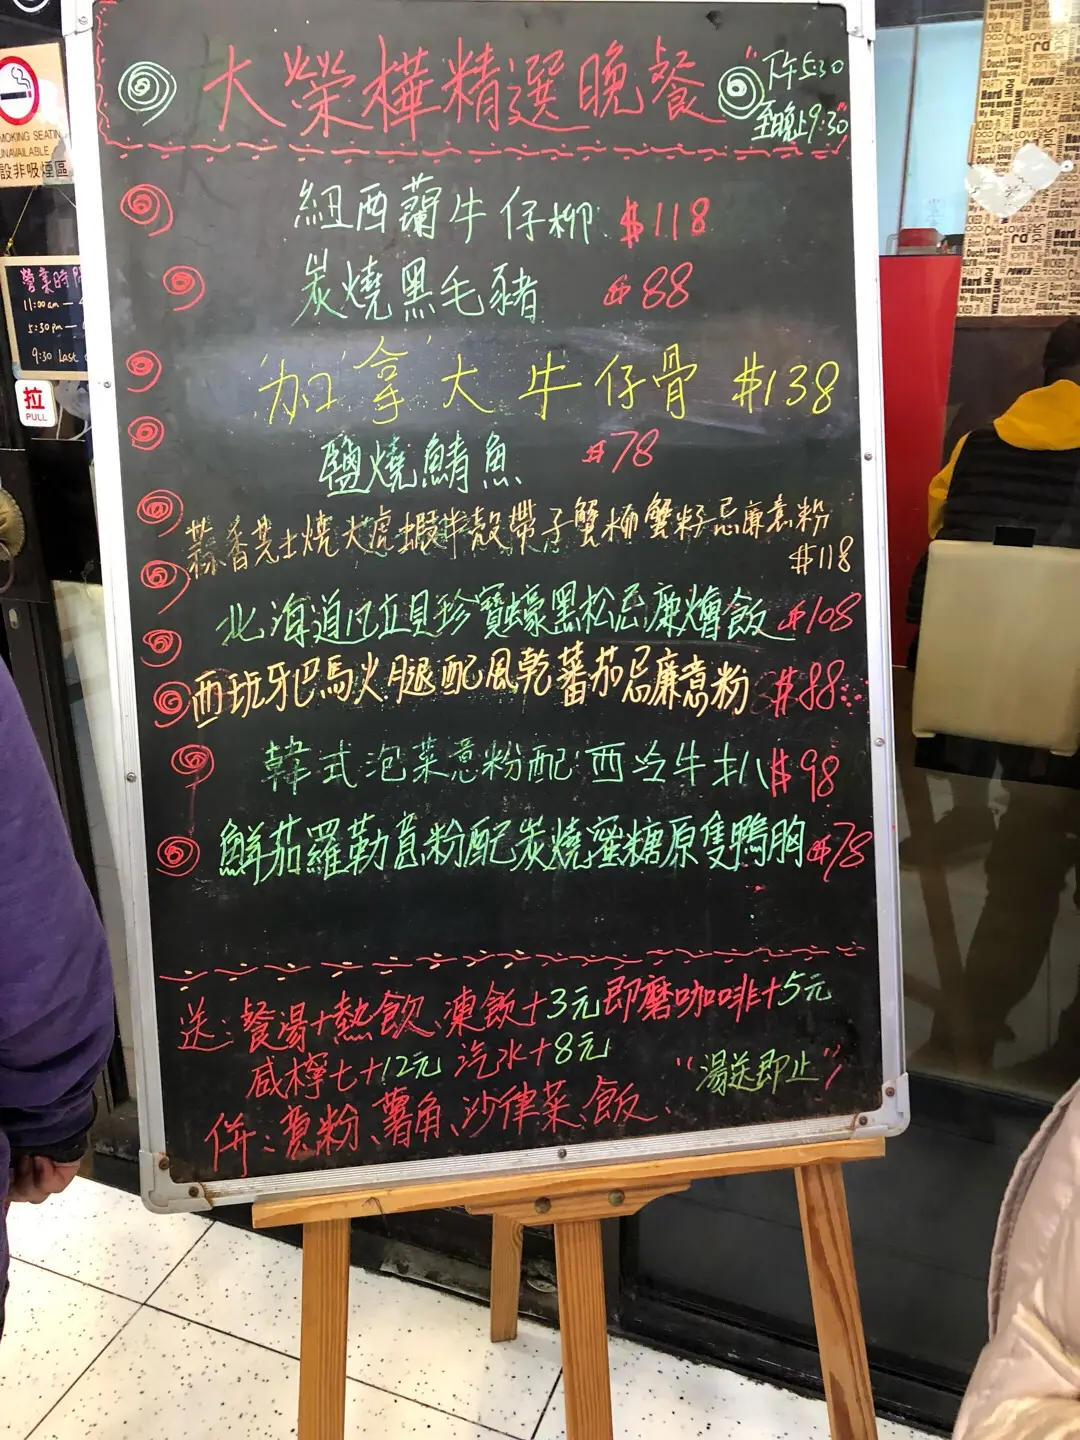 大榮樺精選晚餐
"下午5:30
至晚上9:30"
紐西蘭牛仔柳 $118
炭燒黑毛豬 $88
加拿大牛仔骨 $138
鹽燒鯖魚 $78
蒜香芝士燒大虎蝦半殼帶子蟹柳蟹籽忌廉意粉
$118
北海道元貝珍寶蠔黑松忌廉燴飯 $108
西班牙巴馬火腿配風乾蕃茄忌廉意粉 $88
韓式泡菜意粉配西冷牛扒 $98
鮮茄羅勒意粉配炭燒蜜糖原隻鴨胸 $78
送:餐湯+熱飲、凍飲+3元即磨咖啡+5元
咸檸七+12元 汽水+8元
"湯送即止"
併:意粉、薯角、沙律菜、飯
MOKING SEATIN
UNAVAILABLE
設非吸煙區
營業時間
11:00am —
5:30pm —
9:30 Last
拉
PULL